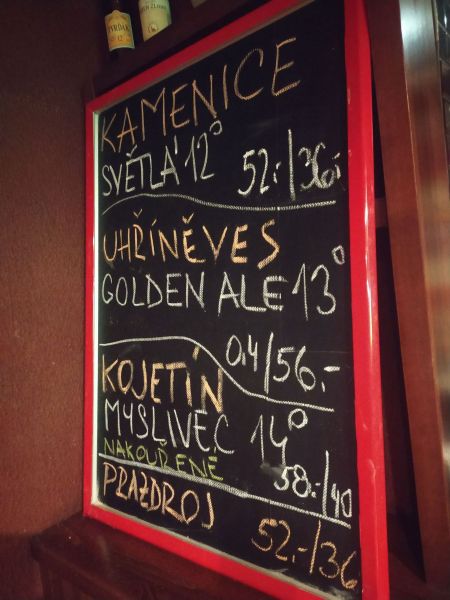 TVRĎÁK
12
KAMENICE
SVĚTLÁ 12° 52.-/36.-
UHŘÍNĚVES
GOLDEN ALE 13°
0,4/56.-
KOJETÍN
MYSLIVEC 14°
NAKOUŘENÉ 58.-/40
PRAZDROJ
52.-/36